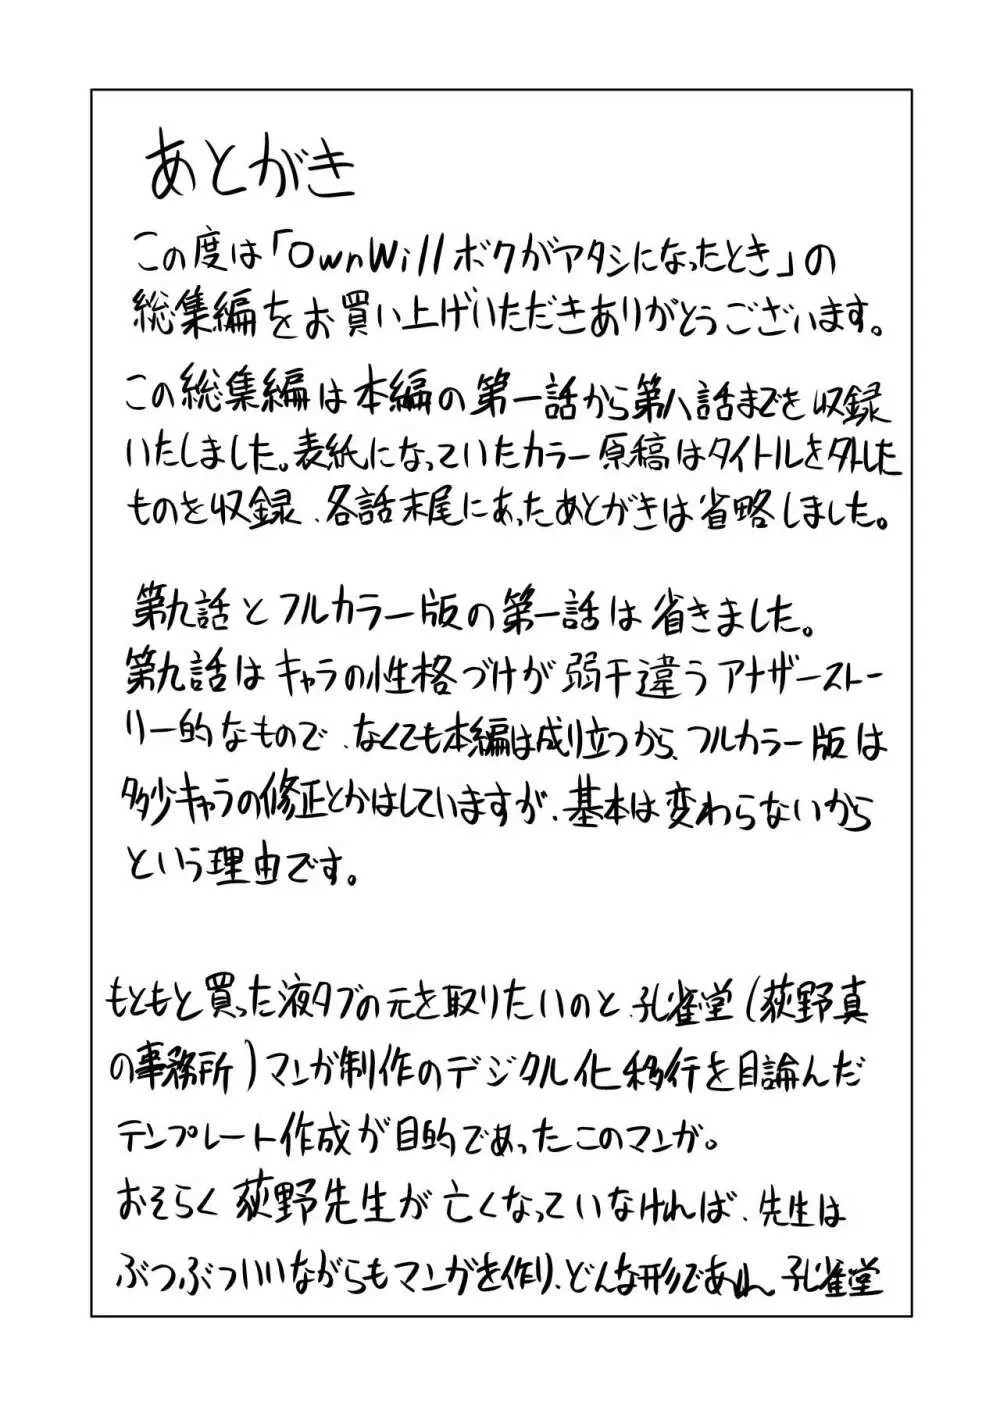 あとがき
この度は「OwnWillボクがアタシになったとき」の
総集編をお買い上げいただきありがとうございます。
この総集編は本編の第一話から第八話までを収録
いたしました。表紙になっていたカラー原稿はタイトルを外した
ものを収録、各話末尾にあったあとがきは省略しました。
第九話とフルカラー版の第一話は省きました。
第九話はキャラの性格づけが若干違うアナザーストー
リー的なもので、なくても本編は成り立つから、フルカラー版は
多少キャラの修正とかはしていますが、基本は変わらないから
という理由です。
もともと買った液タブの元を取りたいのと、孔雀堂(荻野真
の事務所)マンガ制作のデジタル化移行を目論んだ
テンプレート作成が目的であったこのマンガ。
おそらく荻野先生が亡くなっていなければ、先生は
ぶつぶついいながらもマンガを作り、どんな形であれ、孔雀堂